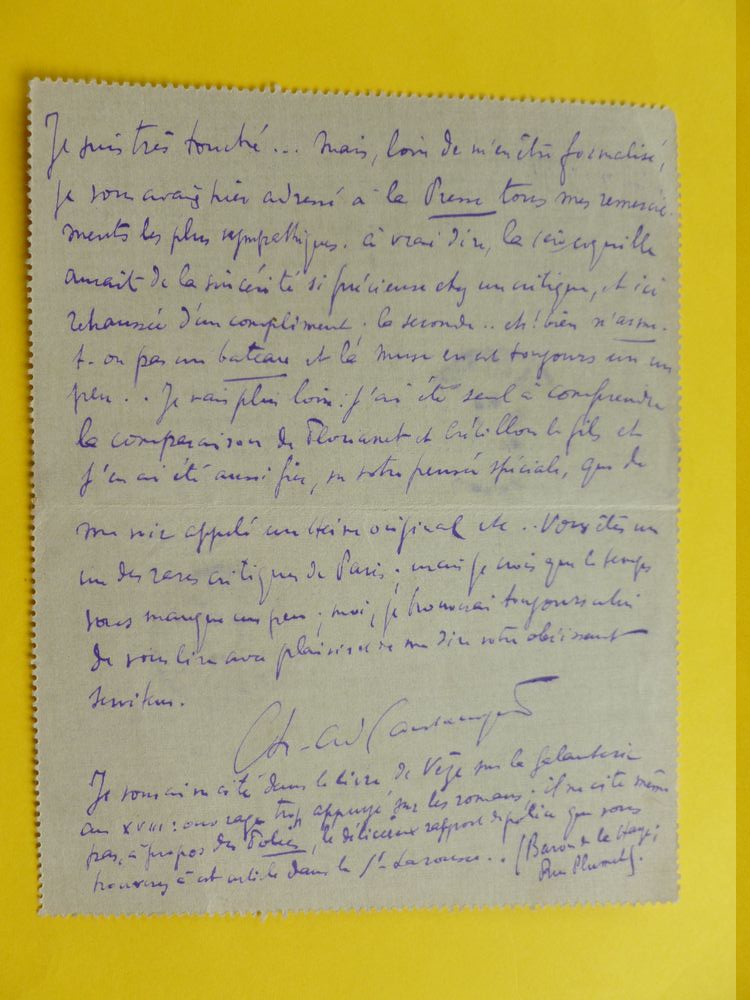 Je suis très touché... mais, loin de m'en être formalisé,
je vous avais hier adressé à la Presse tous mes remercie-
ments les plus sympathiques. à vrai dire, la 1ère coquille
aurait de la sincérité si précieuse chez un critique, et ici
rehaussée d'un compliment. la seconde.. eh! bien n'assme.
t-on pas un bateau et la Muse en est toujours un un
peu.. Je vais plus loin: j'ai été seul à comprendre
la comparaison de Florianet et Crébillon le fils et
j'en ai été aussi fier, vu votre pensée spéciale, que de
me voir appelé un Heine original etc.. Vous êtes un
un des rares critiques de Paris; mais je crois que le temps
vous manque un peu; moi, je trouverai toujours celui
de vous lire avec plaisir et de me dire votre obéissant
serviteur.
Je vous ai vu cité dans le livre de Vèze sur la galanterie
au XVIII: ouvrage trop appuyé sur les romans; il ne cite même
pas, à propos des Folies, le délicieux rapport de police que vous
trouverez à cet article dans le Gd Larousse.. (Baron de la Haye;
Rue Plumet).